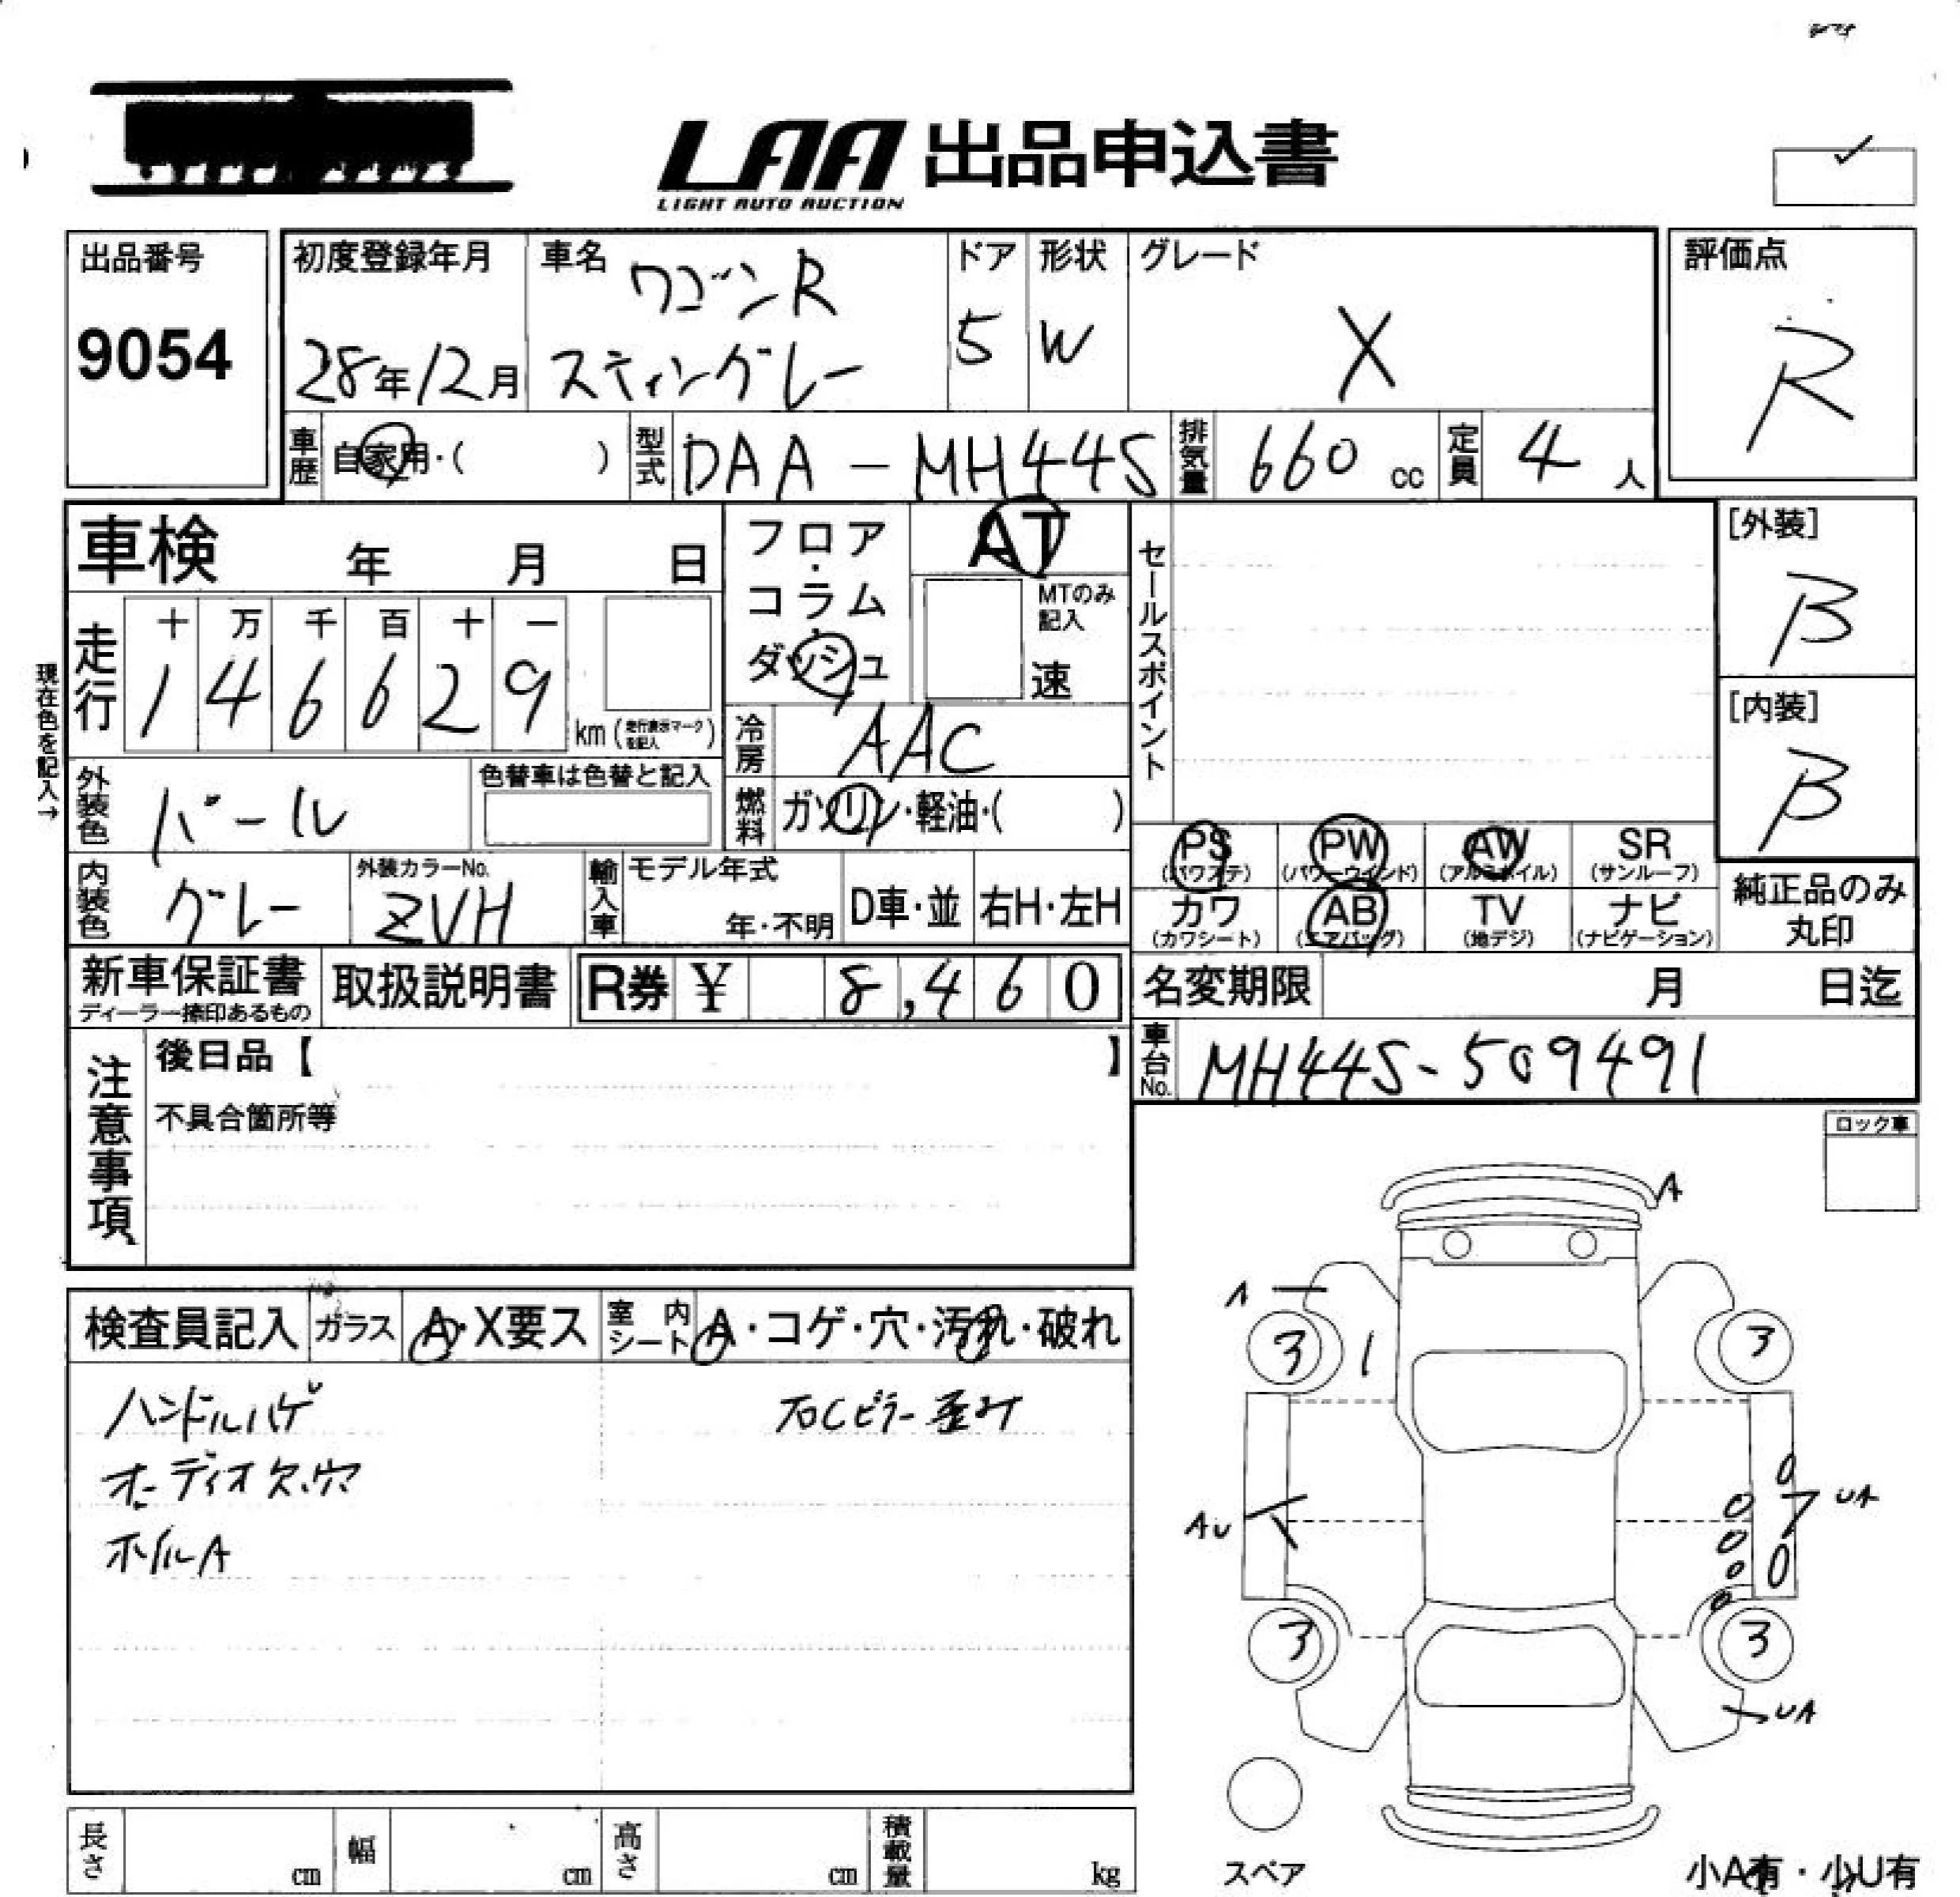 LAA 出品申込書
LIGHT AUTO AUCTION
出品番号
9054
初度登録年月
28年12月
車名
ワゴンR
スティングレー
ドア
5
形状
W
グレード
X
評価点
R
車歴
自家用・( )
型式
DAA-MH44S
排気量
660 cc
定員
4 人
車検 年 月 日
フロア・
コラム・
ダッシュ
AT
MTのみ
記入
速
セールスポイント
[外装]
B
[内装]
B
現在色を記入→
走行
十 万 千 百 十 一
1 4 6 6 2 9
km(走行表示マークを記入)
冷房
AAC
外装色
パール
色替車は色替と記入
燃料
ガソリン・軽油・( )
PS
(パワステ)
PW
(パワーウインド)
AW
(アルミホイル)
SR
(サンルーフ)
内装色
グレー
外装カラーNo.
ZVH
輸入車
モデル年式
年・不明
D車・並
右H・左H
カワ
(カワシート)
AB
(エアバッグ)
TV
(地デジ)
ナビ
(ナビゲーション)
純正品のみ
丸印
新車保証書
ディーラー捺印あるもの
取扱説明書
R券 ¥ 8,460
名変期限 月 日迄
注意事項
後日品【 】
不具合箇所等
車台No.
MH44S-509491
ロック車
検査員記入
ガラス
A・X要ス
室内シート
A・コゲ・穴・汚れ・破れ
ハンドルハゲ
オーディオ欠、穴
ホイルA
右Cピラー歪み
A
A
3
1
3
AU
UA
3
3
UA
スペア
小A有・小U有
長さ cm
幅 cm
高さ cm
積載量 kg